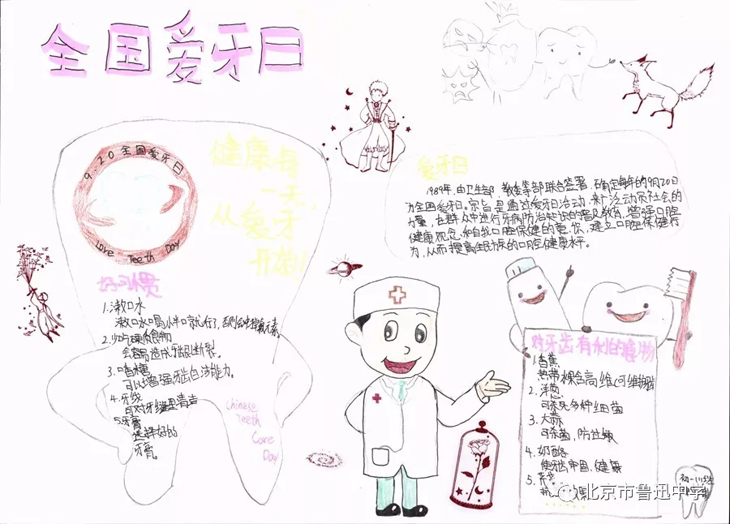 全国爱牙日
9.20全国爱牙日
Love Teeth Day
健康每
一天，
从爱牙
开始！
爱牙日
1989年，由卫生部 教委等部联合签署，确定每年的9月20日
为全国爱牙日。宗旨是通过爱牙日活动，来广泛动员社会的
力量，在群众中进行牙病防治知识的普及教育，增强口腔
健康观念和自我口腔保健的意识，建立口腔保健行
为，从而提高全民族的口腔健康水平。
好习惯
1.漱口水
漱口水喝小半口就行了，
会容易造成牙龈断裂。
3.
可以增强牙齿自洁能力。
4.牙线
5.牙膏
选择好的
牙膏。
Chinese
Teeth
Care
Day
对牙齿有利的食物
1.香蕉
2.洋葱
可杀死多种细菌
3.大蒜
可杀菌，防蛀牙
4.奶酪
使牙齿牢固，健康
5.
北京市鲁迅中学